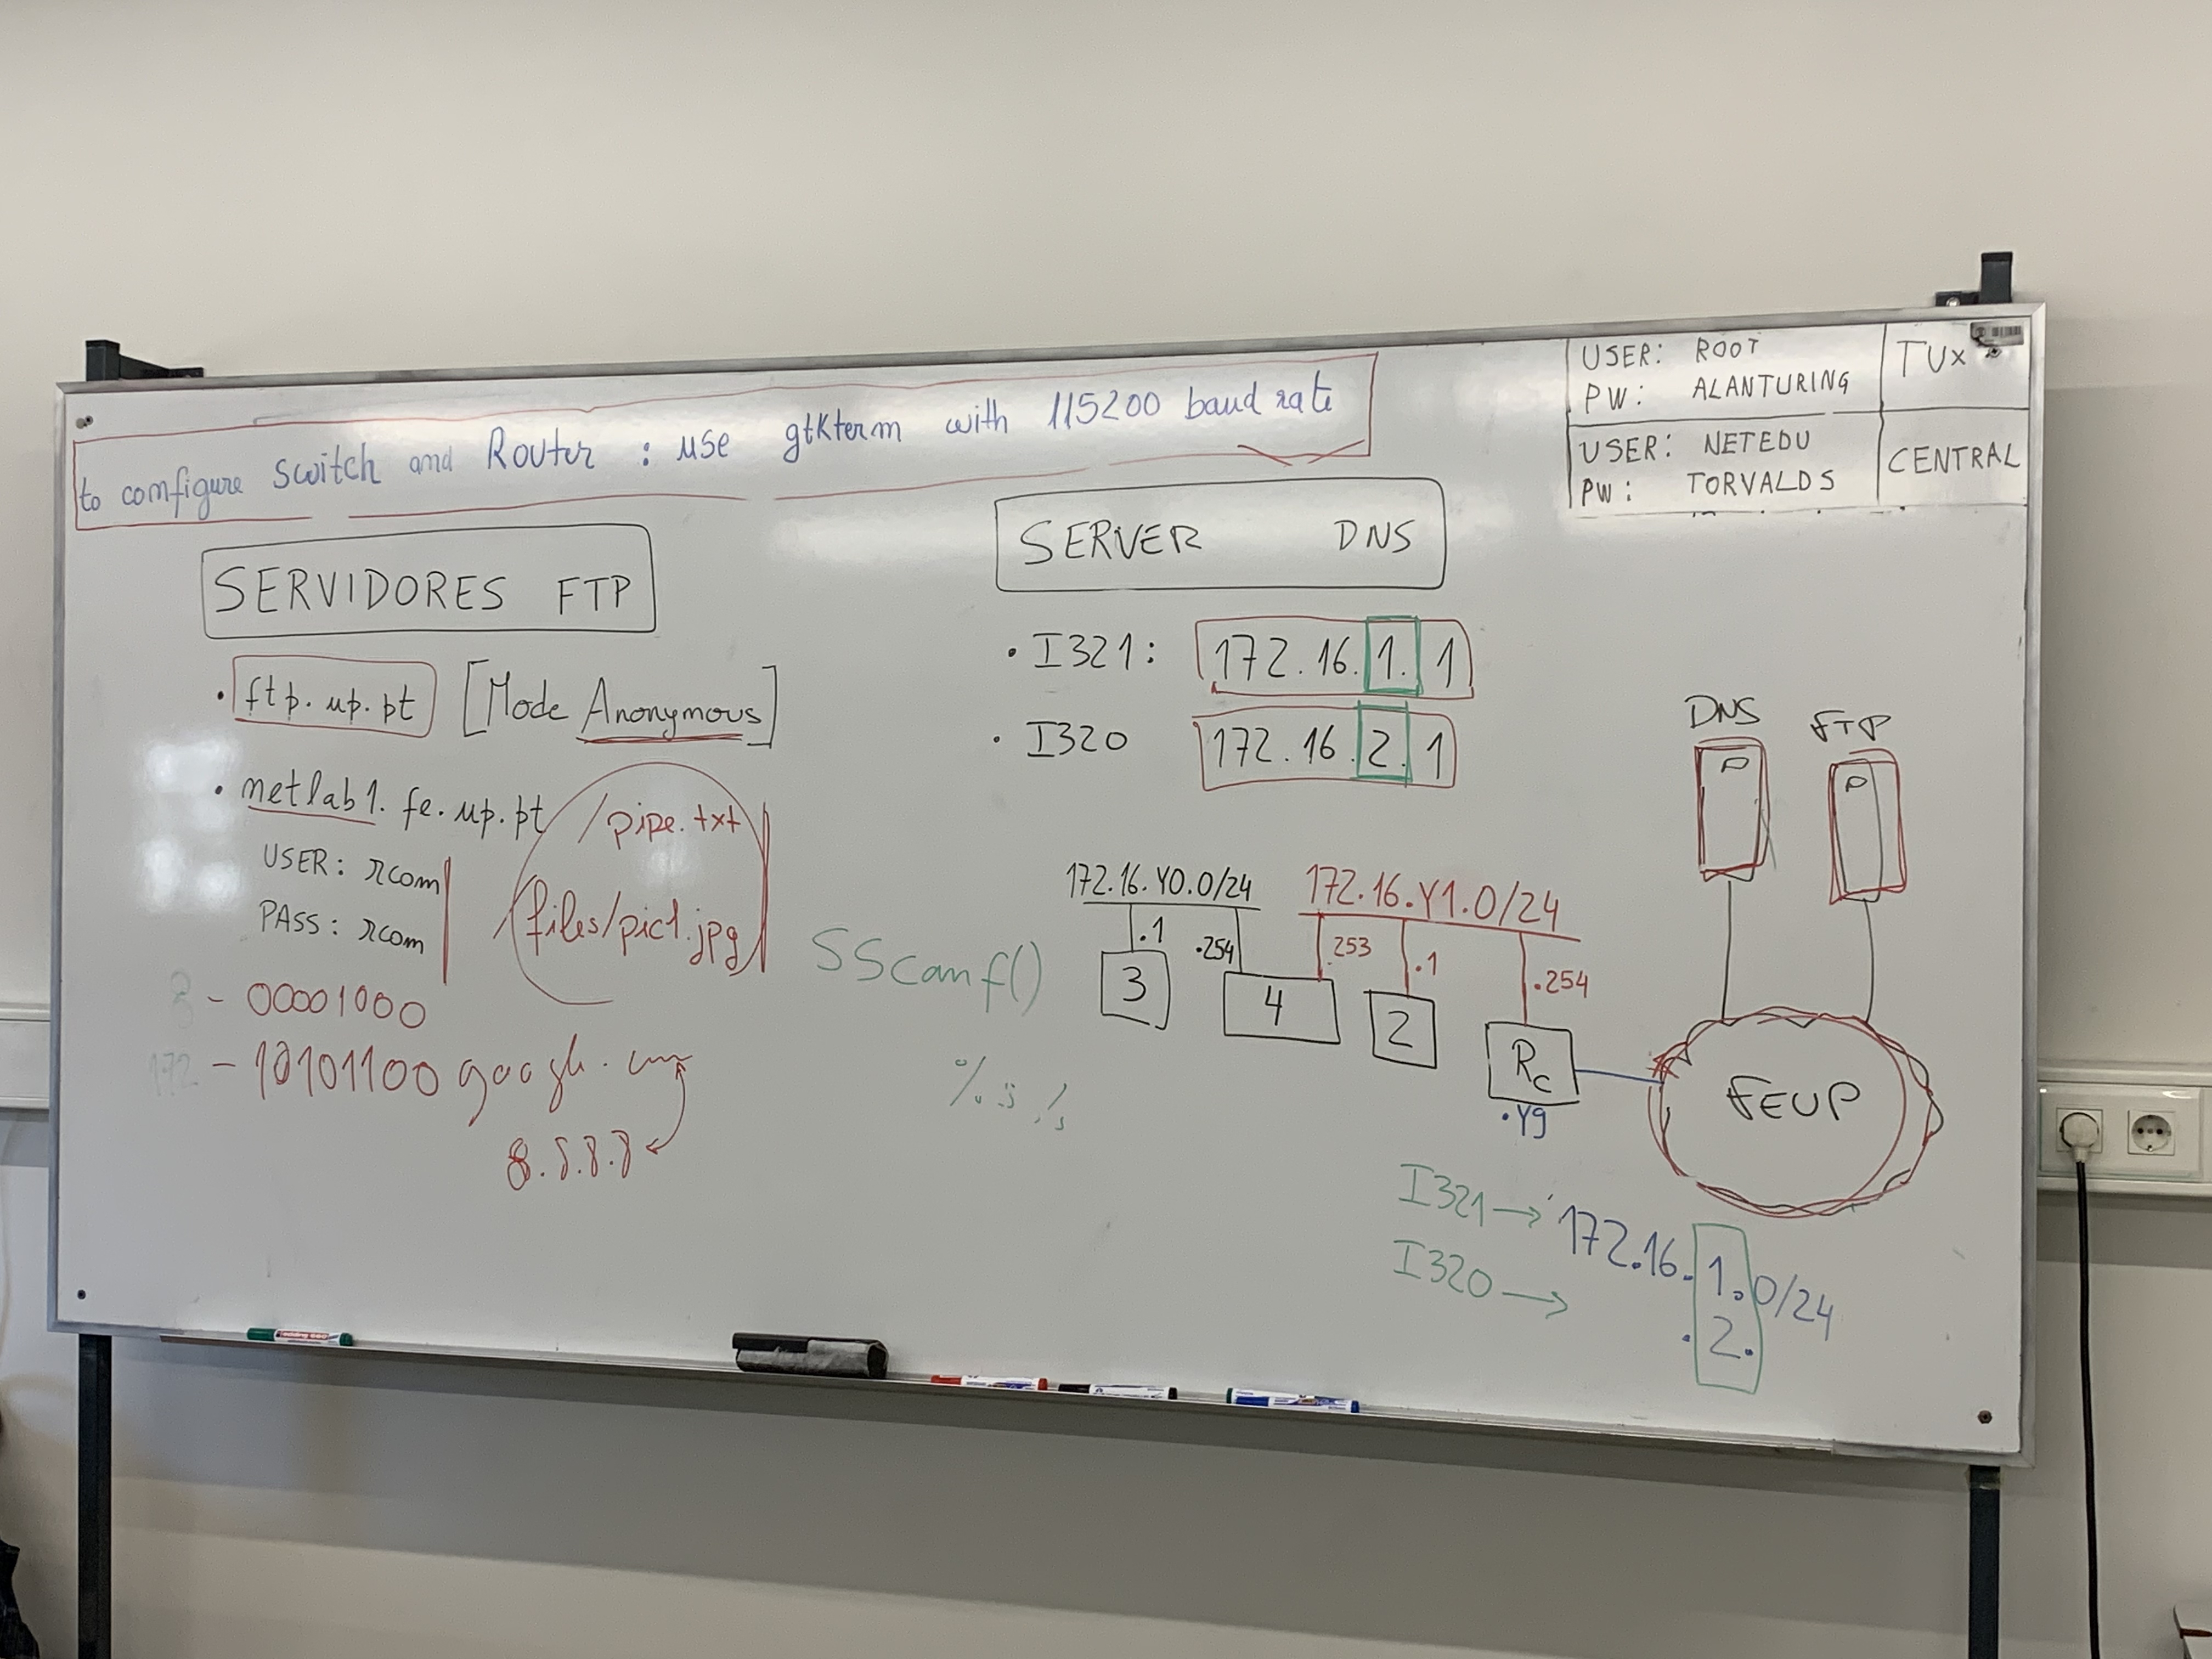 to configure Switch and Router : use gtkterm with 115200 baud rate
USER: ROOT
PW: ALANTURING
TUx
USER: NETEDU
PW: TORVALDS
CENTRAL
SERVIDORES FTP
• ftp.up.pt [Mode Anonymous]
• netlab1.fe.up.pt /pipe.txt
USER: rcom
PASS: rcom
/files/pic1.jpg
8 - 00001000
172 - 10101100
8.8.8.8
SERVER DNS
• I321: 172.16.1.1
• I320 172.16.2.1
SScanf()
172.16.Y0.0/24
172.16.Y1.0/24
.1
.254
.253
.1
.254
3
4
2
Rc
.Y9
DNS
FTP
FEUP
I321 → 172.16.1.0/24
I320 → .2.